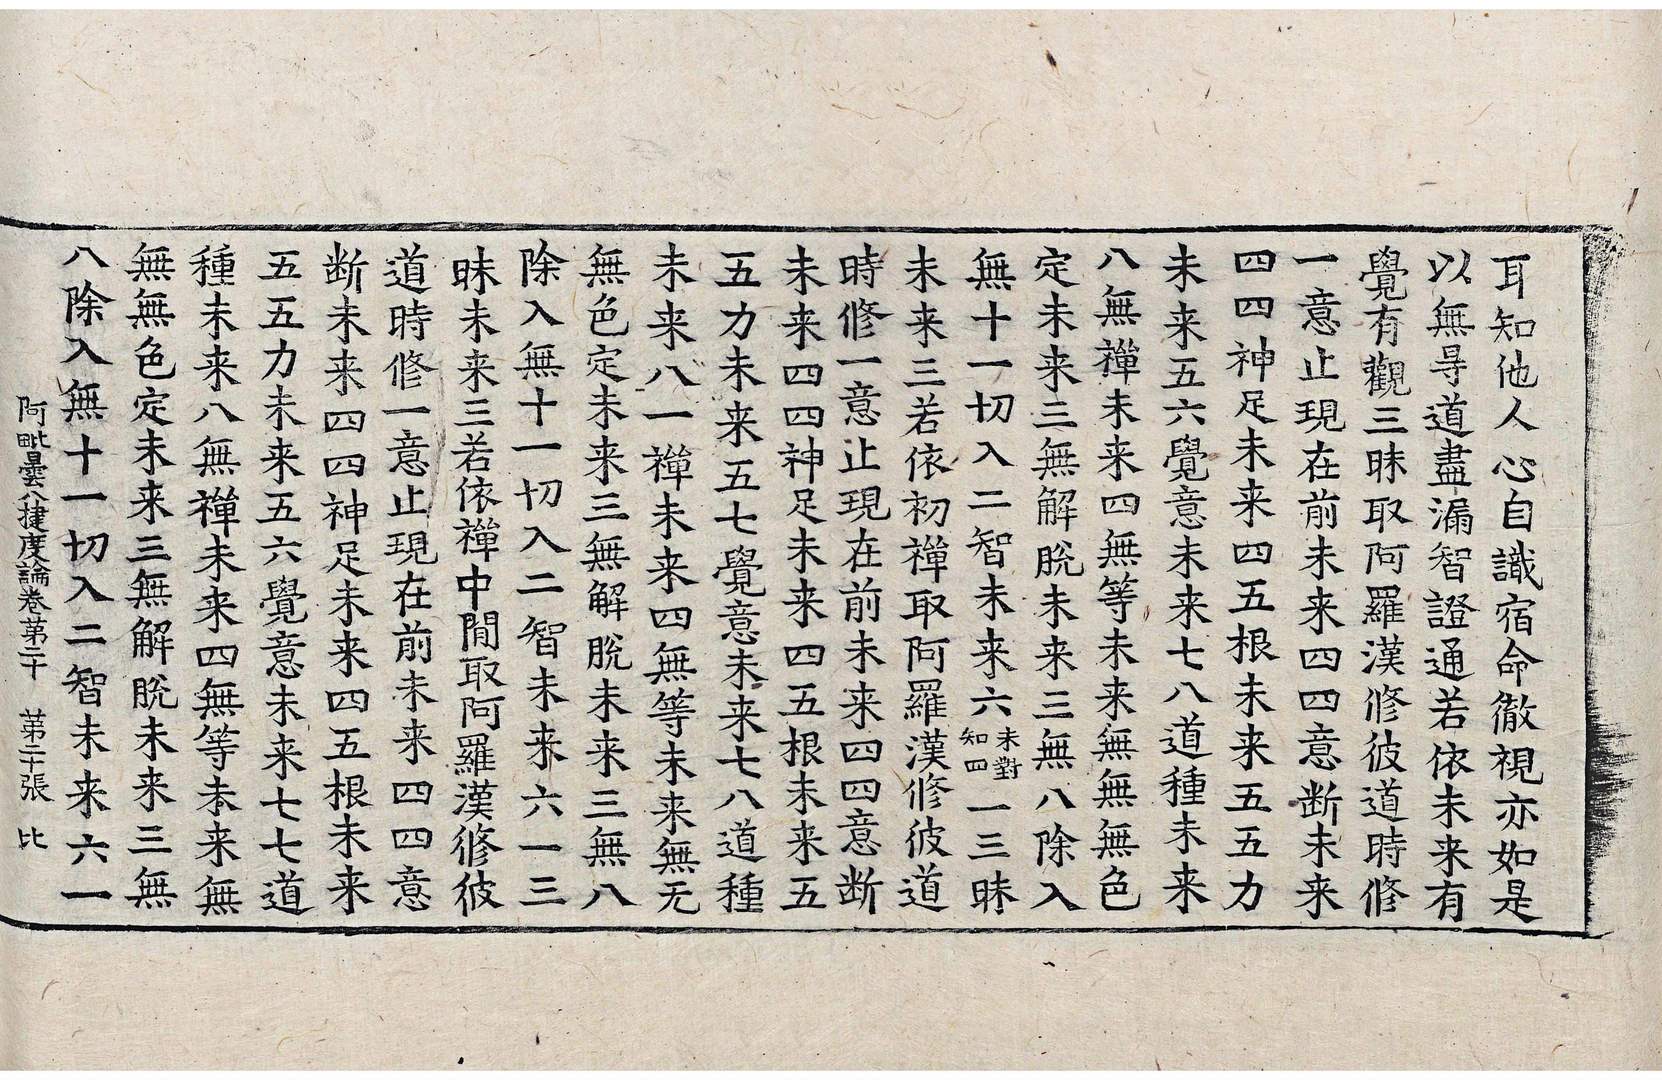 耳知他人心自識宿命徹視亦如是
以無㝵道盡漏智證通若依未来有
覺有觀三昧取阿羅漢修彼道時修
一意止現在前未来四四意断未来
四四神足未来四五根未来五五力
未来五六覺意未来七八道種未来
八無禪未来四無等未来無無無色
定未来三無解脫未来三無八除入
無十一切入二智未来六未對知四一三昧
未来三若依初禪取阿羅漢修彼道
時修一意止現在前未来四四意断
未来四四神足未来四五根未来五
五力未来五七覺意未来七八道種
未来八一禪未来四無等未来無无
無色定未来三無解脫未来三無八
除入無十一切入二智未来六一三
昧未来三若依禪中間取阿羅漢修彼
道時修一意止現在前未来四四意
断未来四四神足未来四五根未来
五五力未来五六覺意未来七七道
種未来八無禪未来四無等未来無
無無色定未来三無解脫未来三無
八除入無十一切入二智未来六一
阿毗曇八揵度論卷第二十 第二十張 比